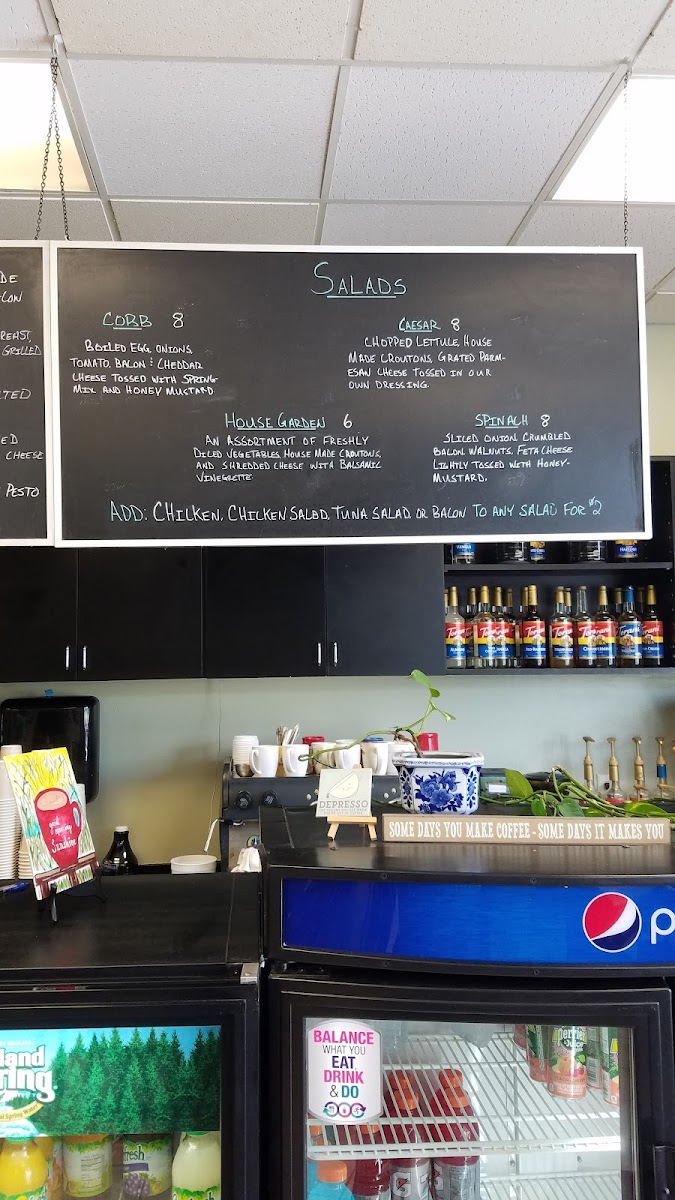 DE
CON
BREAST,
GRILLED
TED
ED
CHEESE
PESTO
SALADS
COBB 8
BOILED EGG, ONIONS,
TOMATO, BACON & CHEDDAR
CHEESE TOSSED WITH SPRING
MIX AND HONEY MUSTARD
CAESAR 8
CHOPPED LETTUCE, HOUSE
MADE CROUTONS, GRATED PARM-
ESAN CHEESE TOSSED IN OUR
OWN DRESSING.
HOUSE GARDEN 6
AN ASSORTMENT OF FRESHLY
DICED VEGETABLES, HOUSE MADE CROUTONS,
AND SHREDDED CHEESE WITH BALSAMIC
VINEGRETTE
SPINACH 8
SLICED ONION, CRUMBLED
BACON, WALNUTS, FETA CHEESE
LIGHTLY TOSSED WITH HONEY-
MUSTARD.
ADD: CHICKEN, CHICKEN SALAD, TUNA SALAD OR BACON TO ANY SALAD FOR $2
Torani Torani Torani Torani Torani Torani Torani
DEPRESSO
SOME DAYS YOU MAKE COFFEE - SOME DAYS IT MAKES YOU
you
are my
Sunshine
p
BALANCE
WHAT YOU
EAT,
DRINK
& DO
land
ring
Spring Water
fresh
perrier
&Juice
G